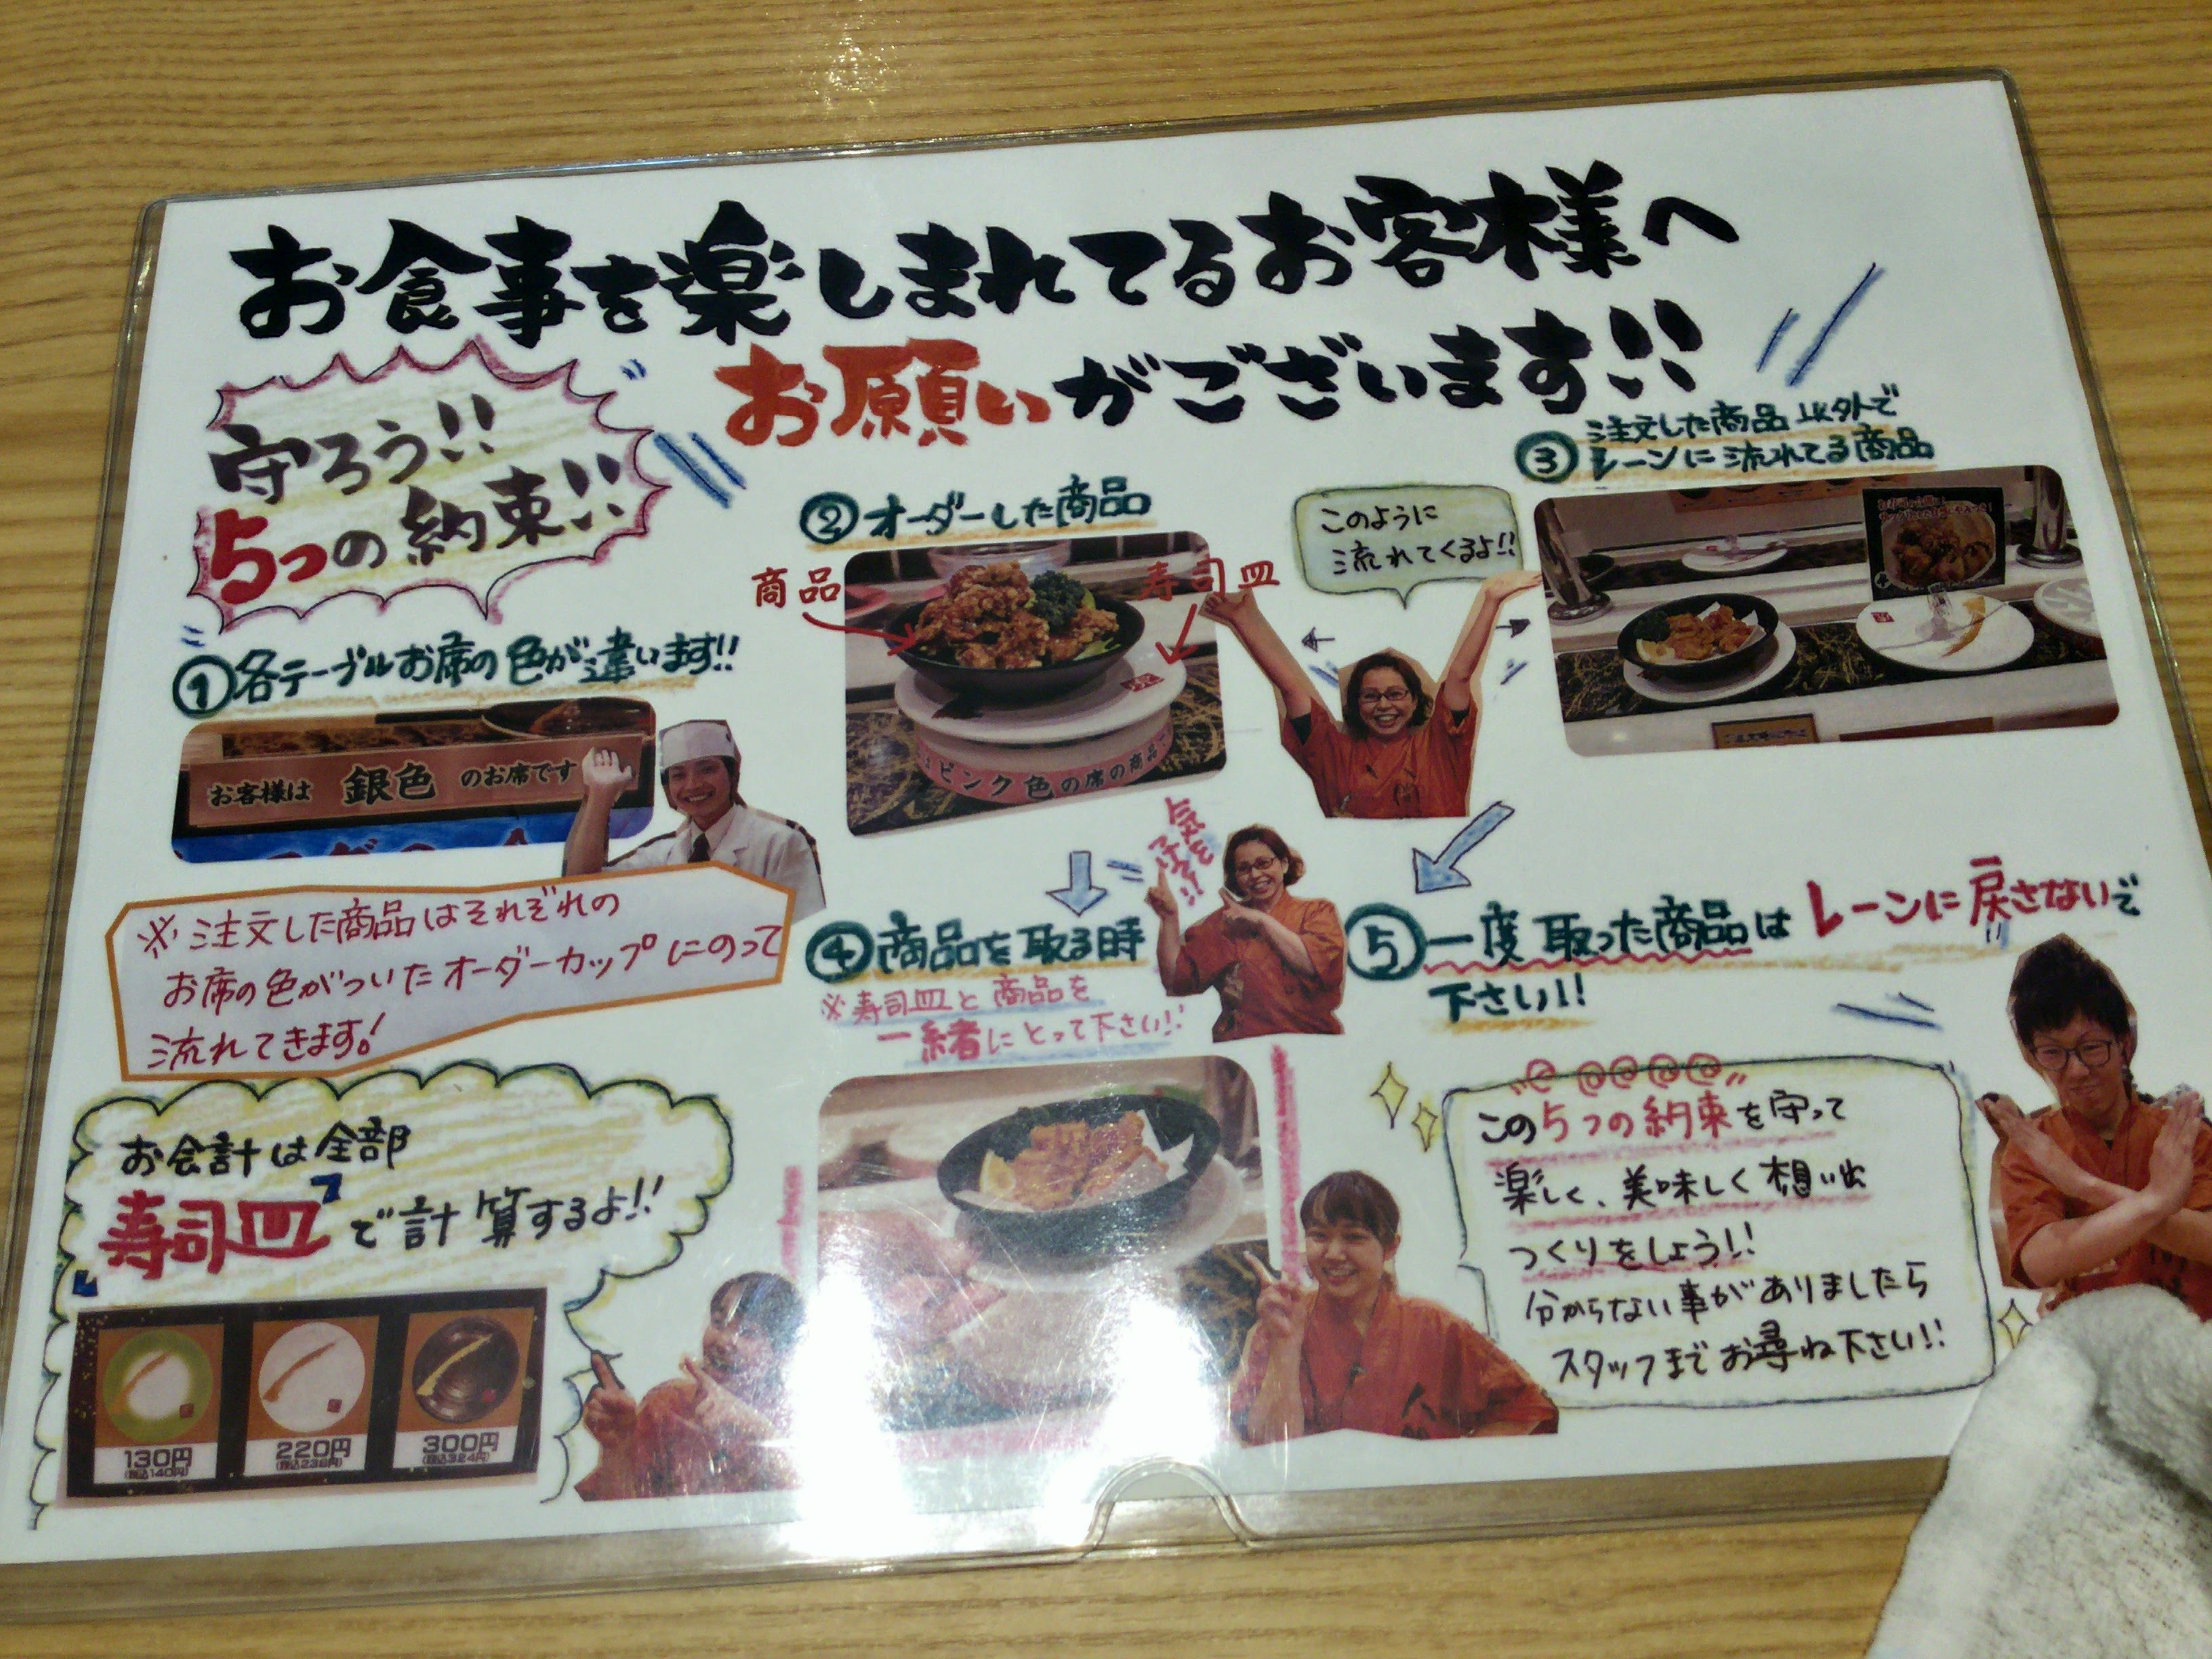 お食事を楽しまれてるお客様へ
お願いがございます!!
守ろう!!
5つの約束!!
①各テーブルお席の色が違います!!
お客様は 銀色 のお席です
※注文した商品はそれぞれの
お席の色がついたオーダーカップにのって
流れてきます!
②オーダーした商品
商品
寿司皿
はピンク色の席の商品
このように
流れてくるよ!!
③注文した商品以外で
レーンに流れてる商品
気を
つけて!!
④商品を取る時
※寿司皿と商品を
一緒にとって下さい!!
⑤一度取った商品はレーンに戻さないで
下さい!!
お会計は全部
寿司皿で計算するよ!!
130円
(税込140円)
220円
(税込238円)
300円
(税込324円)
この5つの約束を守って
楽しく、美味しく想い出
つくりをしよう!!
分からない事がありましたら
スタッフまでお尋ね下さい!!